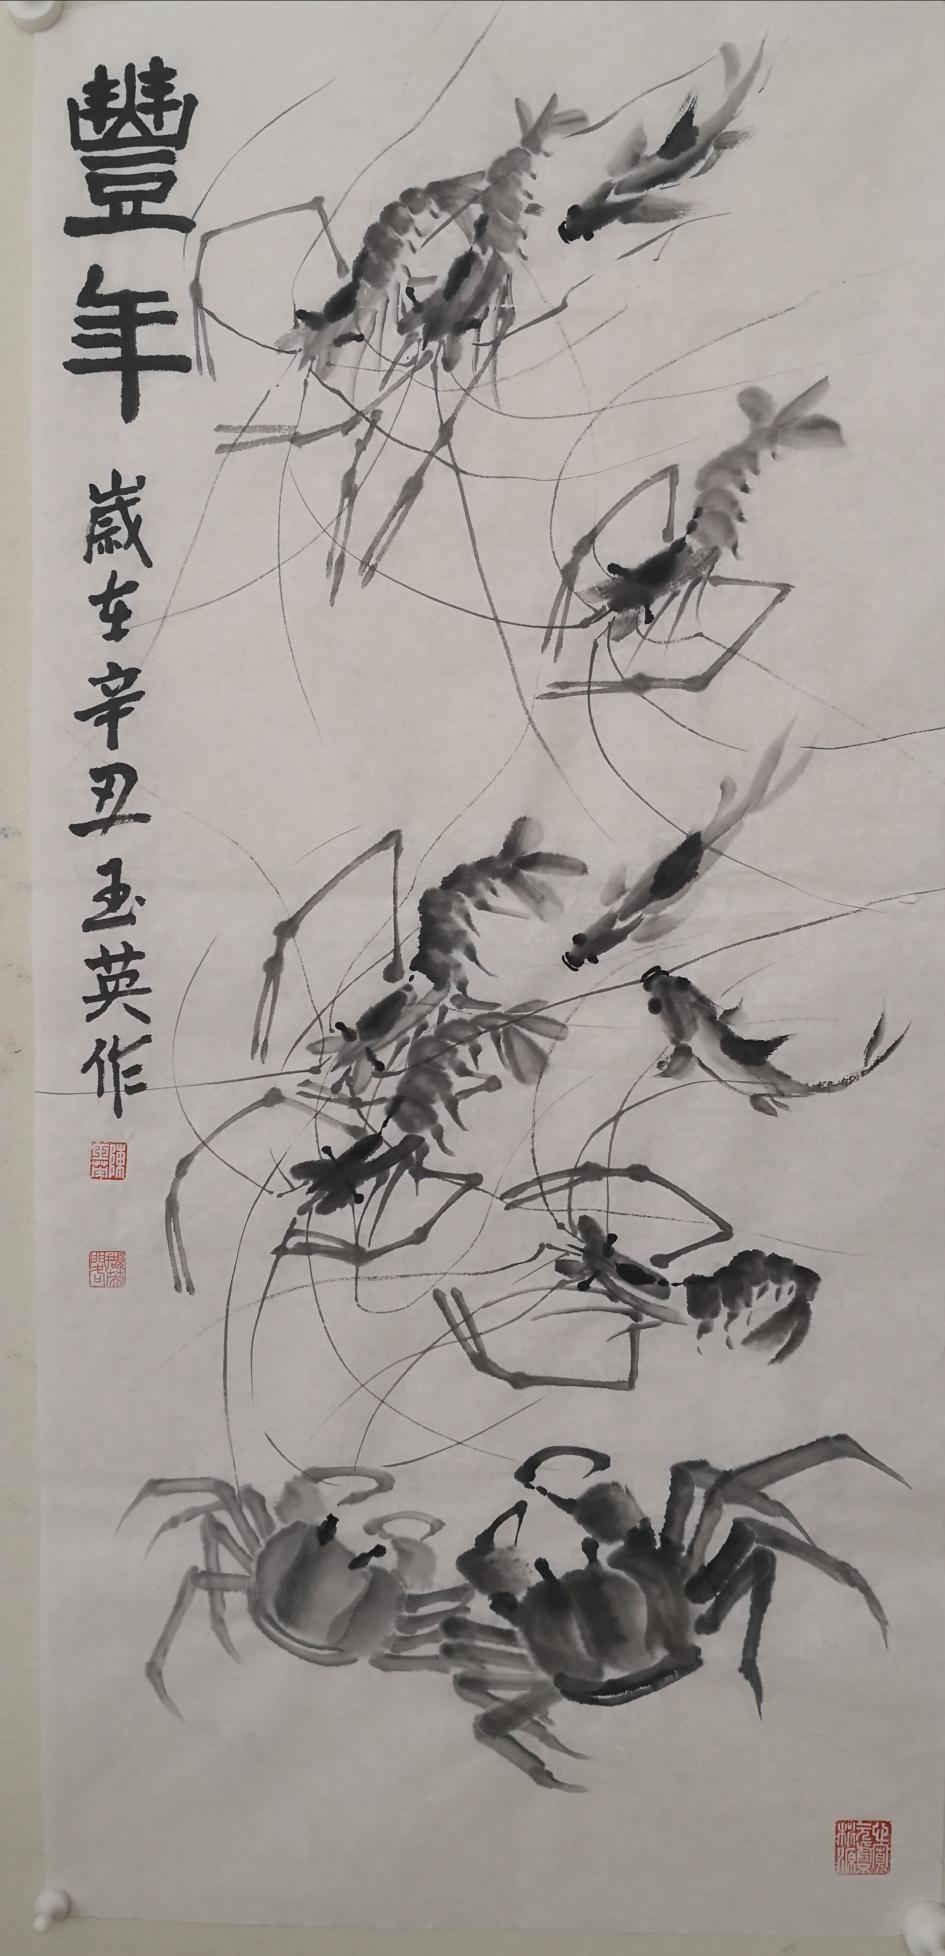 豐年
歲在辛丑玉英作